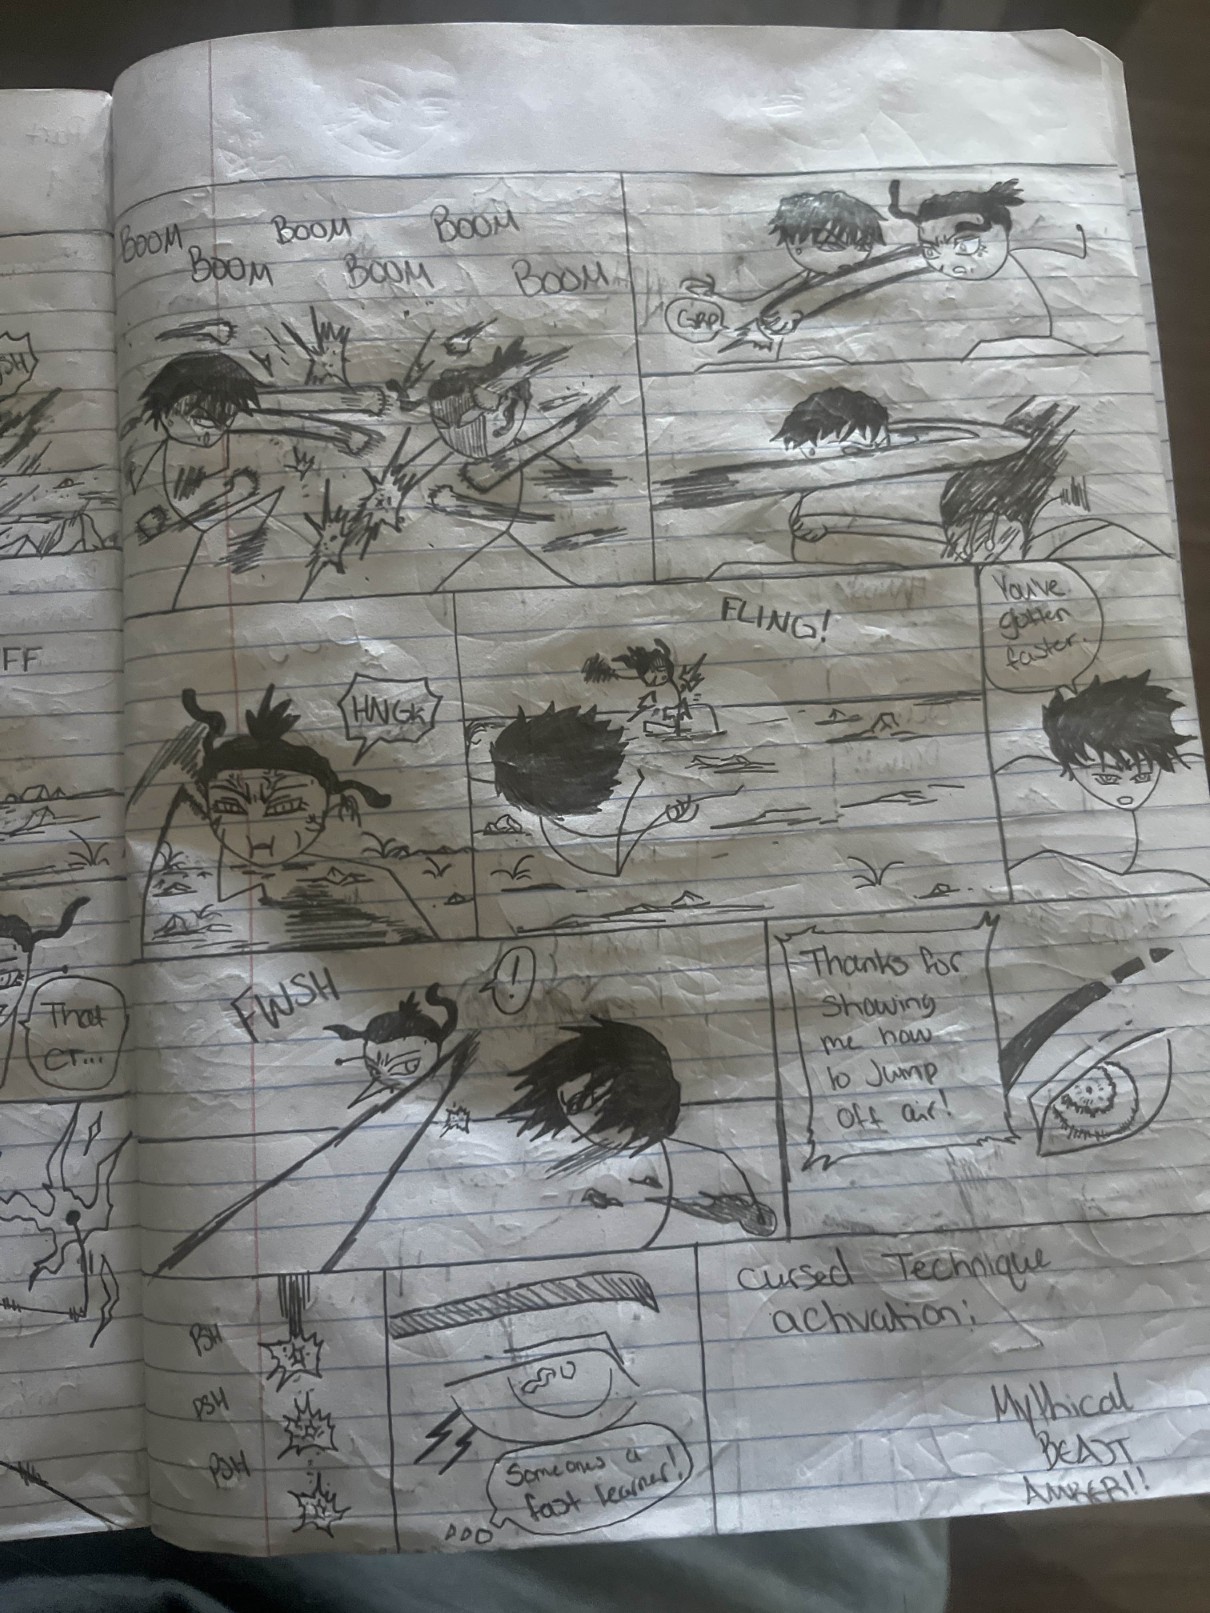 BOOM
BOOM
BOOM
BOOM
BOOM
BOOM
GRP
HNGK
FLING!
You've
gotten
faster.
FWSH
!
Thanks for
showing
me how
to Jump
off air!
PSH
PSH
PSH
Someones a
fast learner!
Cursed Technique
activation:
Mythical
BEAST
AMBER!!
FF
That
CT...